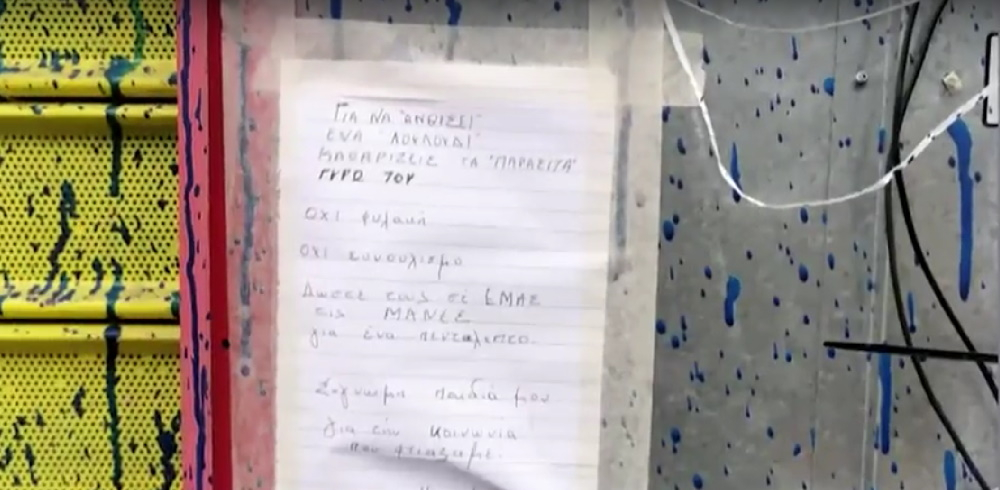 ΓΙΑ ΝΑ "ΑΝΘΙΣΕΙ"
ΕΝΑ "ΛΟΥΛΟΥΔΙ"
ΚΑΘΑΡΙΖΕΙΣ ΤΑ "ΠΑΡΑΣΙΤΑ"
ΓΥΡΩ ΤΟΥ
Οχι φυλακή
Οχι
Δωστε τους σε ΕΜΑΣ
τις ΜΑΝΕΣ
για ένα πεντάλεπτο.
Συγνώμη παιδιά μου
για την κοινωνία
που φτιάξαμε.